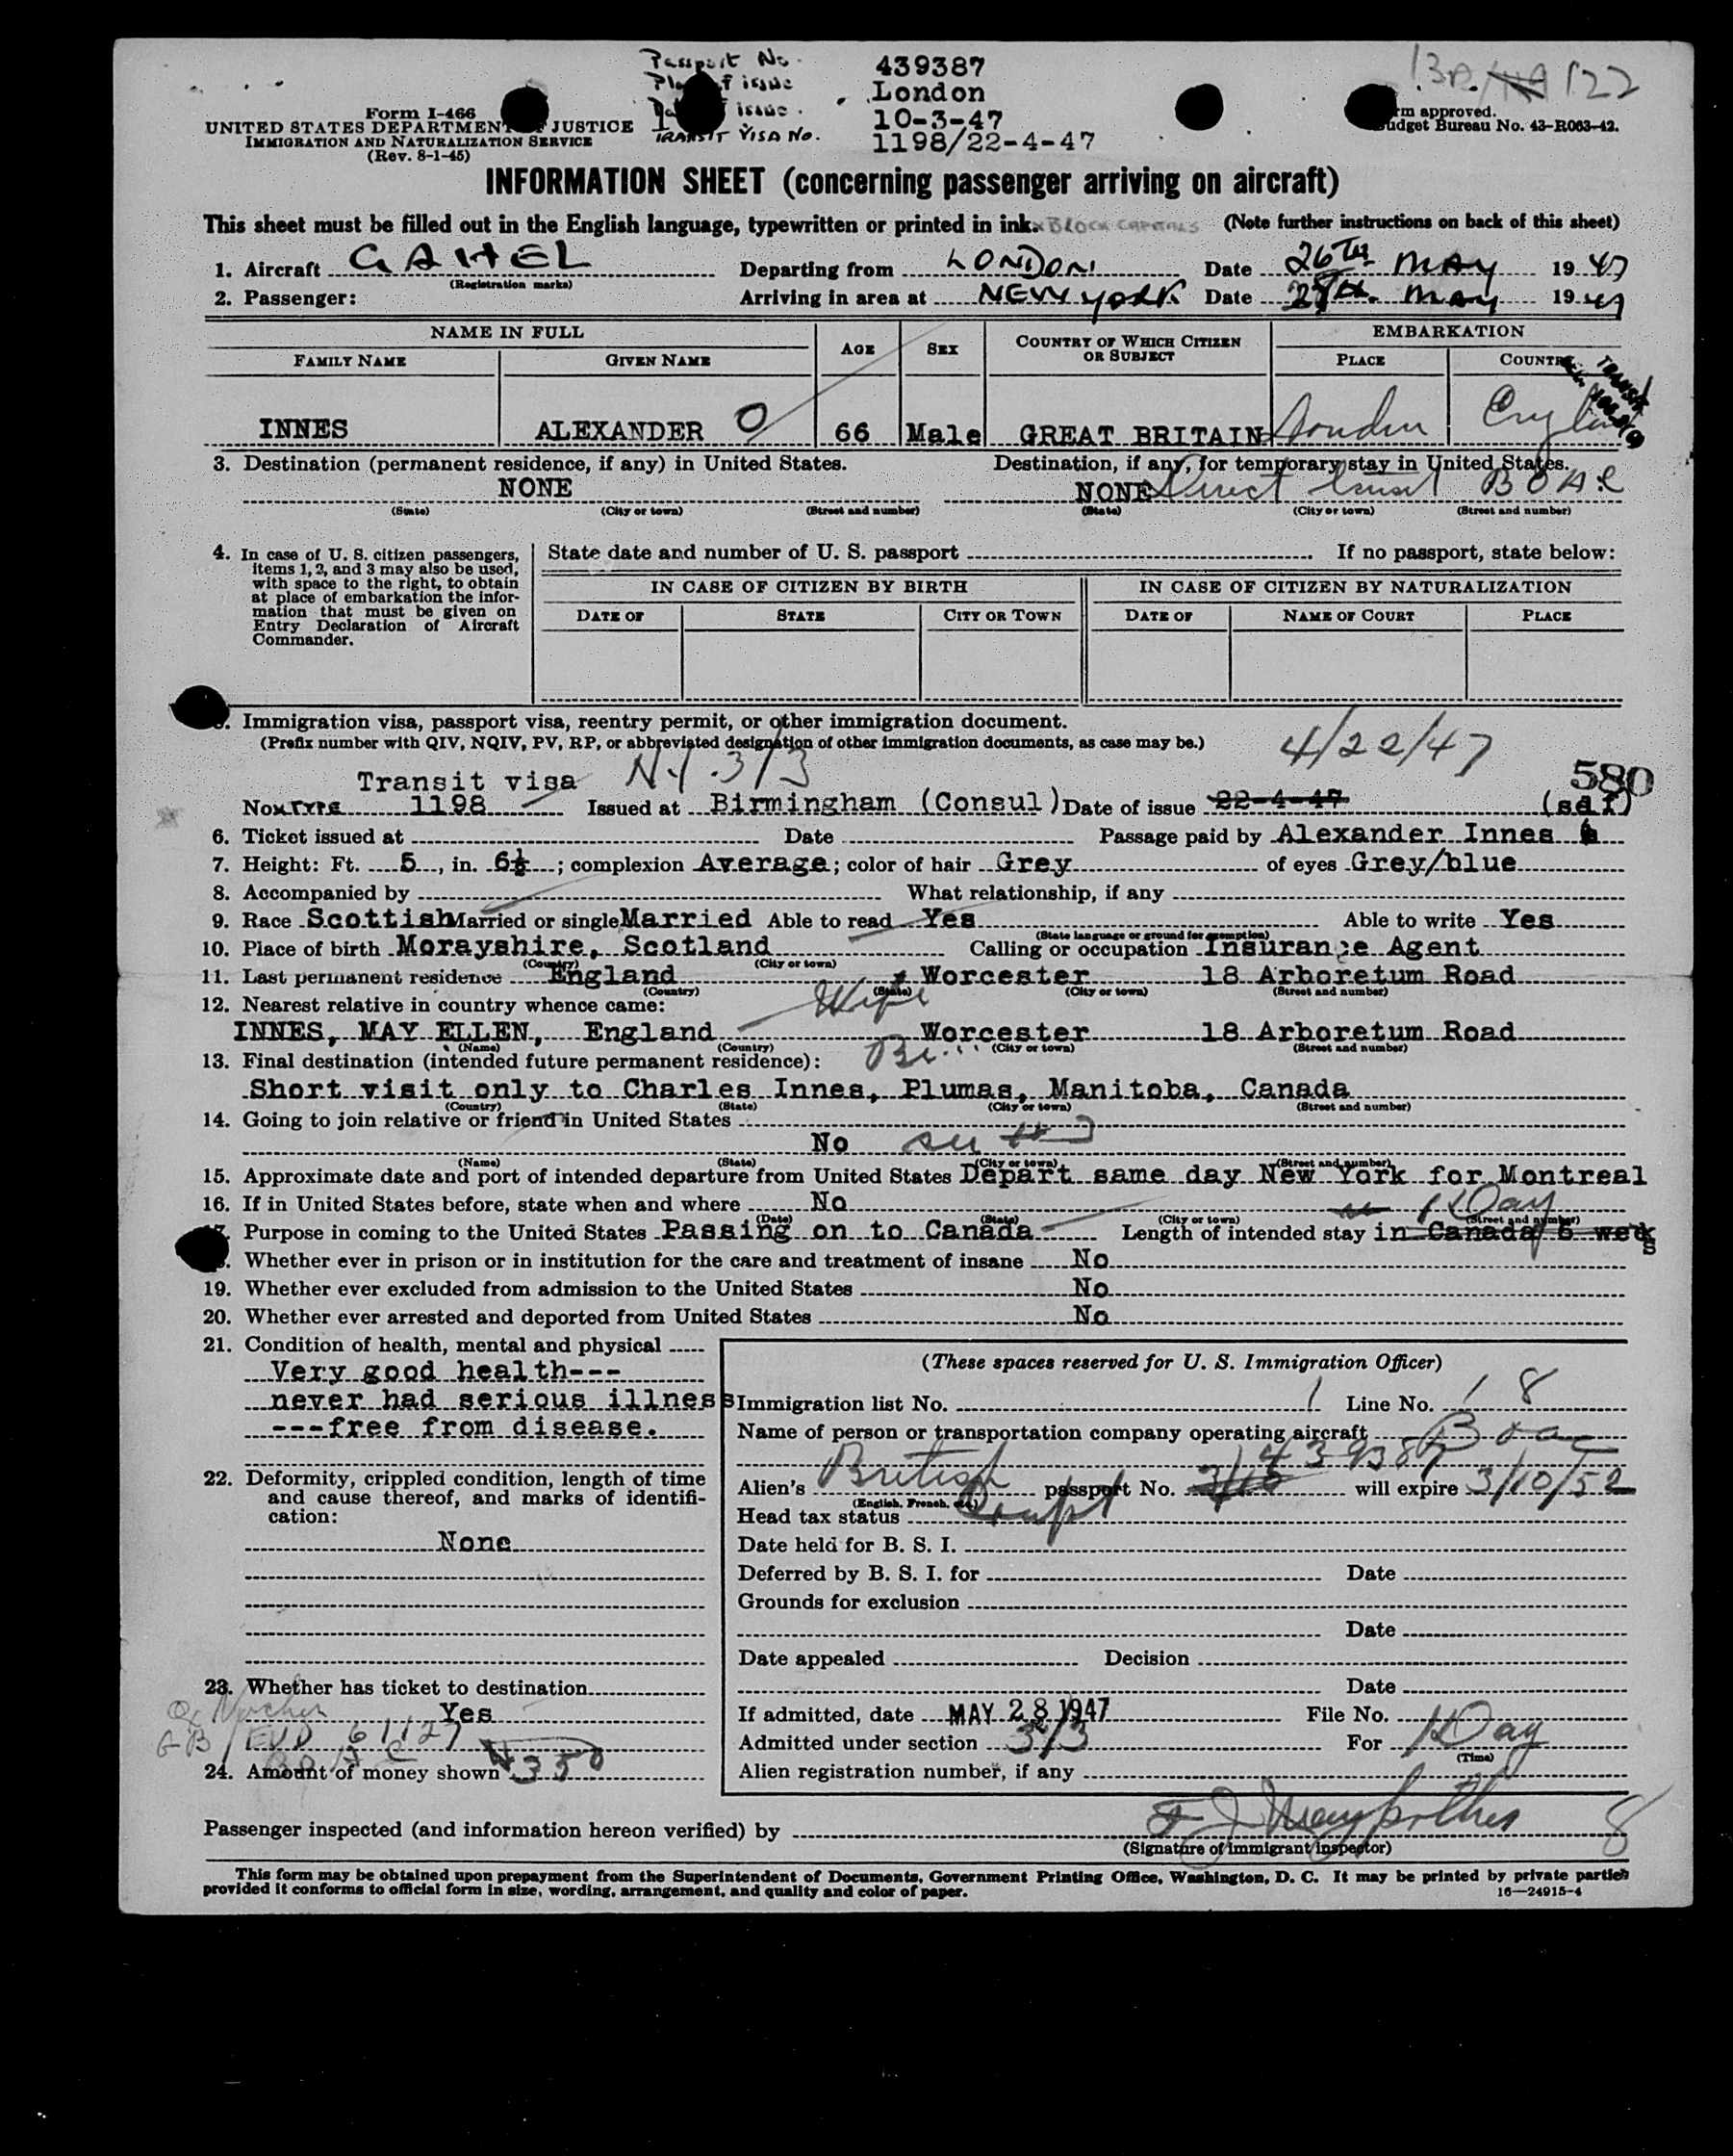 Passport No. 439387
Pl f issue London
issue. 10-3-47
TRANSIT VISA No. 1198/22-4-47
122
Form I-466
UNITED STATES DEPARTMENT JUSTICE
IMMIGRATION AND NATURALIZATION SERVICE
(Rev. 8-1-45)
rm approved.
udget Bureau No. 43-R063-42.
INFORMATION SHEET (concerning passenger arriving on aircraft)
This sheet must be filled out in the English language, typewritten or printed in ink. BLOCK CAPITALS (Note further instructions on back of this sheet)
1. Aircraft GAHEL Departing from LONDON Date 26TH MAY 1947
(Registration marks)
2. Passenger: Arriving in area at NEW YORK Date MAY 1947
NAME IN FULL AGE SEX COUNTRY OF WHICH CITIZEN OR SUBJECT EMBARKATION
FAMILY NAME GIVEN NAME PLACE COUNTRY
TRANSIT
INNES ALEXANDER O 66 Male GREAT BRITAIN London England
3. Destination (permanent residence, if any) in United States. Destination, if any, for temporary stay in United States.
NONE NONE Direct transit BOAC
(State) (City or town) (Street and number) (State) (City or town) (Street and number)
4. In case of U. S. citizen passengers, items 1, 2, and 3 may also be used, with space to the right, to obtain at place of embarkation the information that must be given on Entry Declaration of Aircraft Commander.
State date and number of U. S. passport If no passport, state below:
IN CASE OF CITIZEN BY BIRTH IN CASE OF CITIZEN BY NATURALIZATION
DATE OF STATE CITY OR TOWN DATE OF NAME OF COURT PLACE
Immigration visa, passport visa, reentry permit, or other immigration document.
(Prefix number with QIV, NQIV, PV, RP, or abbreviated designation of other immigration documents, as case may be.) 4/22/47
Transit visa N.Y. 3/3 580
No. & TYPE 1198 Issued at Birmingham (Consul) Date of issue 22-4-47 (self)
6. Ticket issued at Date Passage paid by Alexander Innes
7. Height: Ft. 5, in. 6½; complexion Average; color of hair Grey of eyes Grey/blue
8. Accompanied by What relationship, if any
9. Race Scottish Married or single Married Able to read Yes Able to write Yes
(State language or ground for exemption)
10. Place of birth Morayshire, Scotland Calling or occupation Insurance Agent
(Country) (City or town)
11. Last permanent residence England Worcester 18 Arboretum Road
(Country) (State) (City or town) (Street and number)
12. Nearest relative in country whence came: Wife
INNES, MAY ELLEN, England Worcester 18 Arboretum Road
(Name) (Country) (City or town) (Street and number)
13. Final destination (intended future permanent residence):
Short visit only to Charles Innes, Plumas, Manitoba, Canada
(Country) (State) (City or town) (Street and number)
14. Going to join relative or friend in United States
No
(Name) (State) (City or town) (Street and number)
15. Approximate date and port of intended departure from United States Depart same day New York for Montreal
16. If in United States before, state when and where No
(Date) (State) (City or town) (Street and number)
1 Day
Purpose in coming to the United States Passing on to Canada Length of intended stay in Canada 6 weeks
Whether ever in prison or in institution for the care and treatment of insane No
19. Whether ever excluded from admission to the United States No
20. Whether ever arrested and deported from United States No
21. Condition of health, mental and physical
Very good health---
never had serious illness
---free from disease.
22. Deformity, crippled condition, length of time and cause thereof, and marks of identification:
None
23. Whether has ticket to destination
Yes
GB/ EUD 61127
BOAC
24. Amount of money shown 350
(These spaces reserved for U. S. Immigration Officer)
Immigration list No. 1 Line No. 8
Name of person or transportation company operating aircraft Boac
439387
Alien's British passport No. 3/10 will expire 3/10/52
(English, French, etc.)
Head tax status Exempt
Date held for B. S. I.
Deferred by B. S. I. for Date
Grounds for exclusion
Date
Date appealed Decision
Date
If admitted, date MAY 28 1947 File No.
Admitted under section 3/3 For 1 Day
(Time)
Alien registration number, if any
Passenger inspected (and information hereon verified) by 8
(Signature of immigrant inspector)
This form may be obtained upon prepayment from the Superintendent of Documents, Government Printing Office, Washington, D. C. It may be printed by private parties
provided it conforms to official form in size, wording, arrangement, and quality and color of paper. 16—24915-4